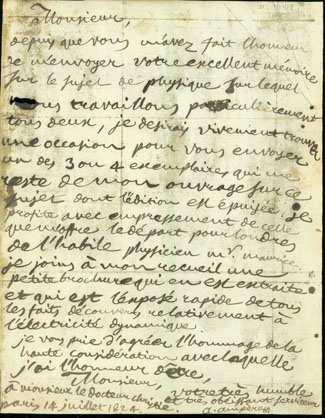 à Monsieur,
depuis que vous m'avez fait l'honneur
de m'envoyer votre excellent mémoire
sur le sujet de physique sur lequel
nous travaillons particulièrement
tous deux, je desirais vivement trouver
une occasion pour vous envoyer
un des 3 ou 4 exemplaires qui me
reste de mon ouvrage sur ce
sujet dont l'édition est épuisée. je
profite avec empressement de celle
que m'offre le départ pour londres
de l'habile physicien mr.
je joins à mon recueil une
petite brochure qui en est extraite
et qui est l'exposé rapide de tous
les faits découverts relativement à
l'électricité dynamique.
je vous prie d'agréer l'hommage de la
haute considération avec laquelle
j'ai l'honneur d'être,
Monsieur,
votre très humble
et très obéissant serviteur
à monsieur le docteur
a. ampère
paris 14 juillet 1824